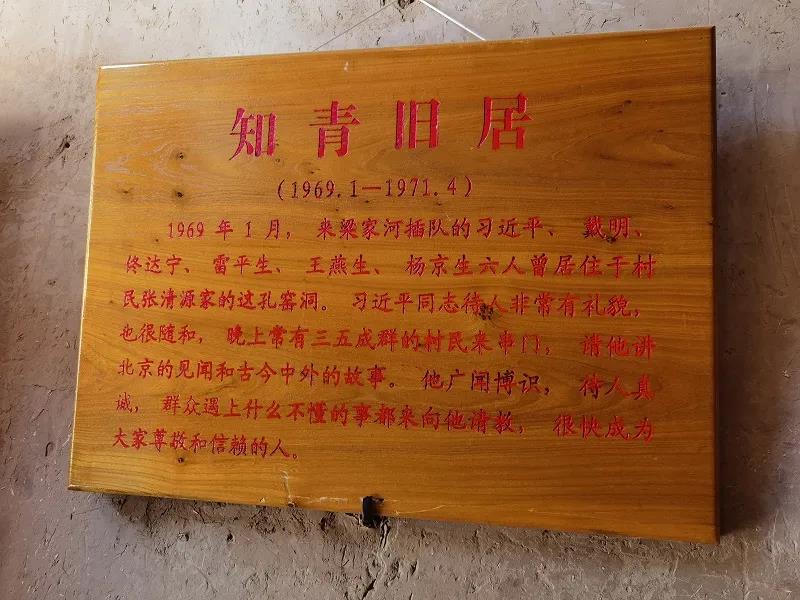 知青旧居
(1969.1—1971.4)
1969年1月，来梁家河插队的习近平、戴明、
佟达宁、雷平生、王燕生、杨京生六人曾居住于村
民张清源家的这孔窑洞。习近平同志待人非常有礼貌，
也很随和，晚上常有三五成群的村民来串门，请他讲
北京的见闻和古今中外的故事。他广闻博识，待人真
诚，群众遇上什么不懂的事都来向他请教，很快成为
大家尊敬和信赖的人。